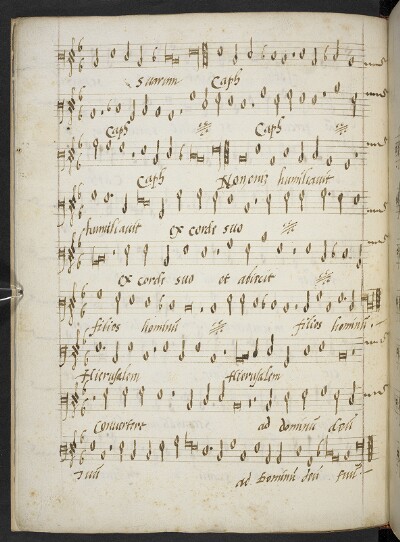 suarum Caph
Caph Caph
Caph Non enim humiliauit
humiliauit ex corde suo
ex corde suo et abiecit
filios hominũ filios hominũ.
Hierusalem Hierusalem
Conuertere ad dominũ deũ
Tuũ ad Dominũ deũ tuũ.